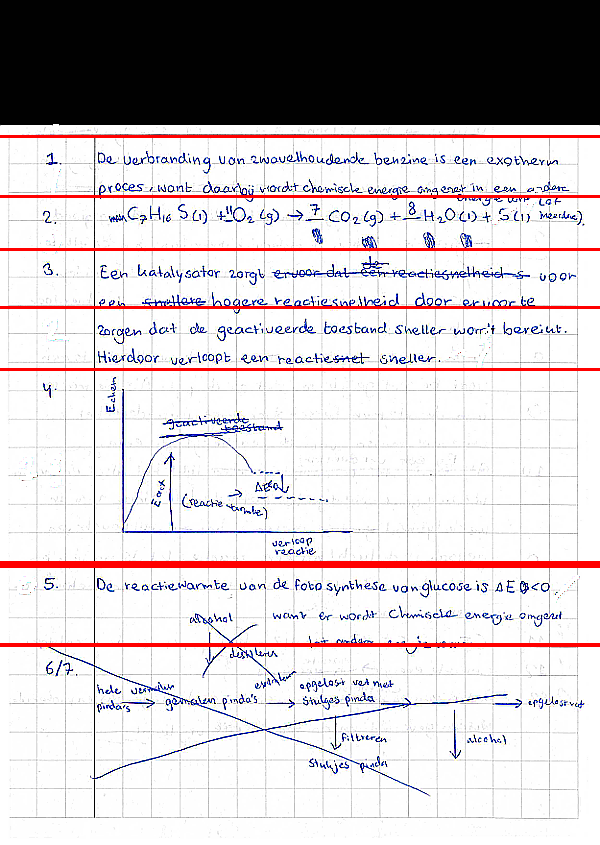 1. De verbranding van zwavelhoudende benzine is een exotherm
proces, want daarbij wordt chemische energie omgezet in een andere
2. C7H16 S(l) + 11O2 (g) → 7 CO2 (g) + 8 H2O (l) + S(l)
3. Een katalysator zorgt ervoor dat de een reactiesnelheid s voor
een snellere hogere reactiesnelheid door ervoor te
zorgen dat de geactiveerde toestand sneller wor't bereikt.
Hierdoor verloopt een reactiesnel sneller.
4. Echem
geactiveerde
toestand
Eact
(reactie warmte) → ΔE<0
verloop
reactie
5. De reactiewarmte van de fotosynthese van glucose is ΔE<0
want er wordt Chemische energie omgezet
alcohol
destilleren
6/7.
hele pinda's → vermalen gemalen pinda's → opgelost vet met stukjes pinda → → opgelost vet
filtreren
alcohol
stukjes pinda